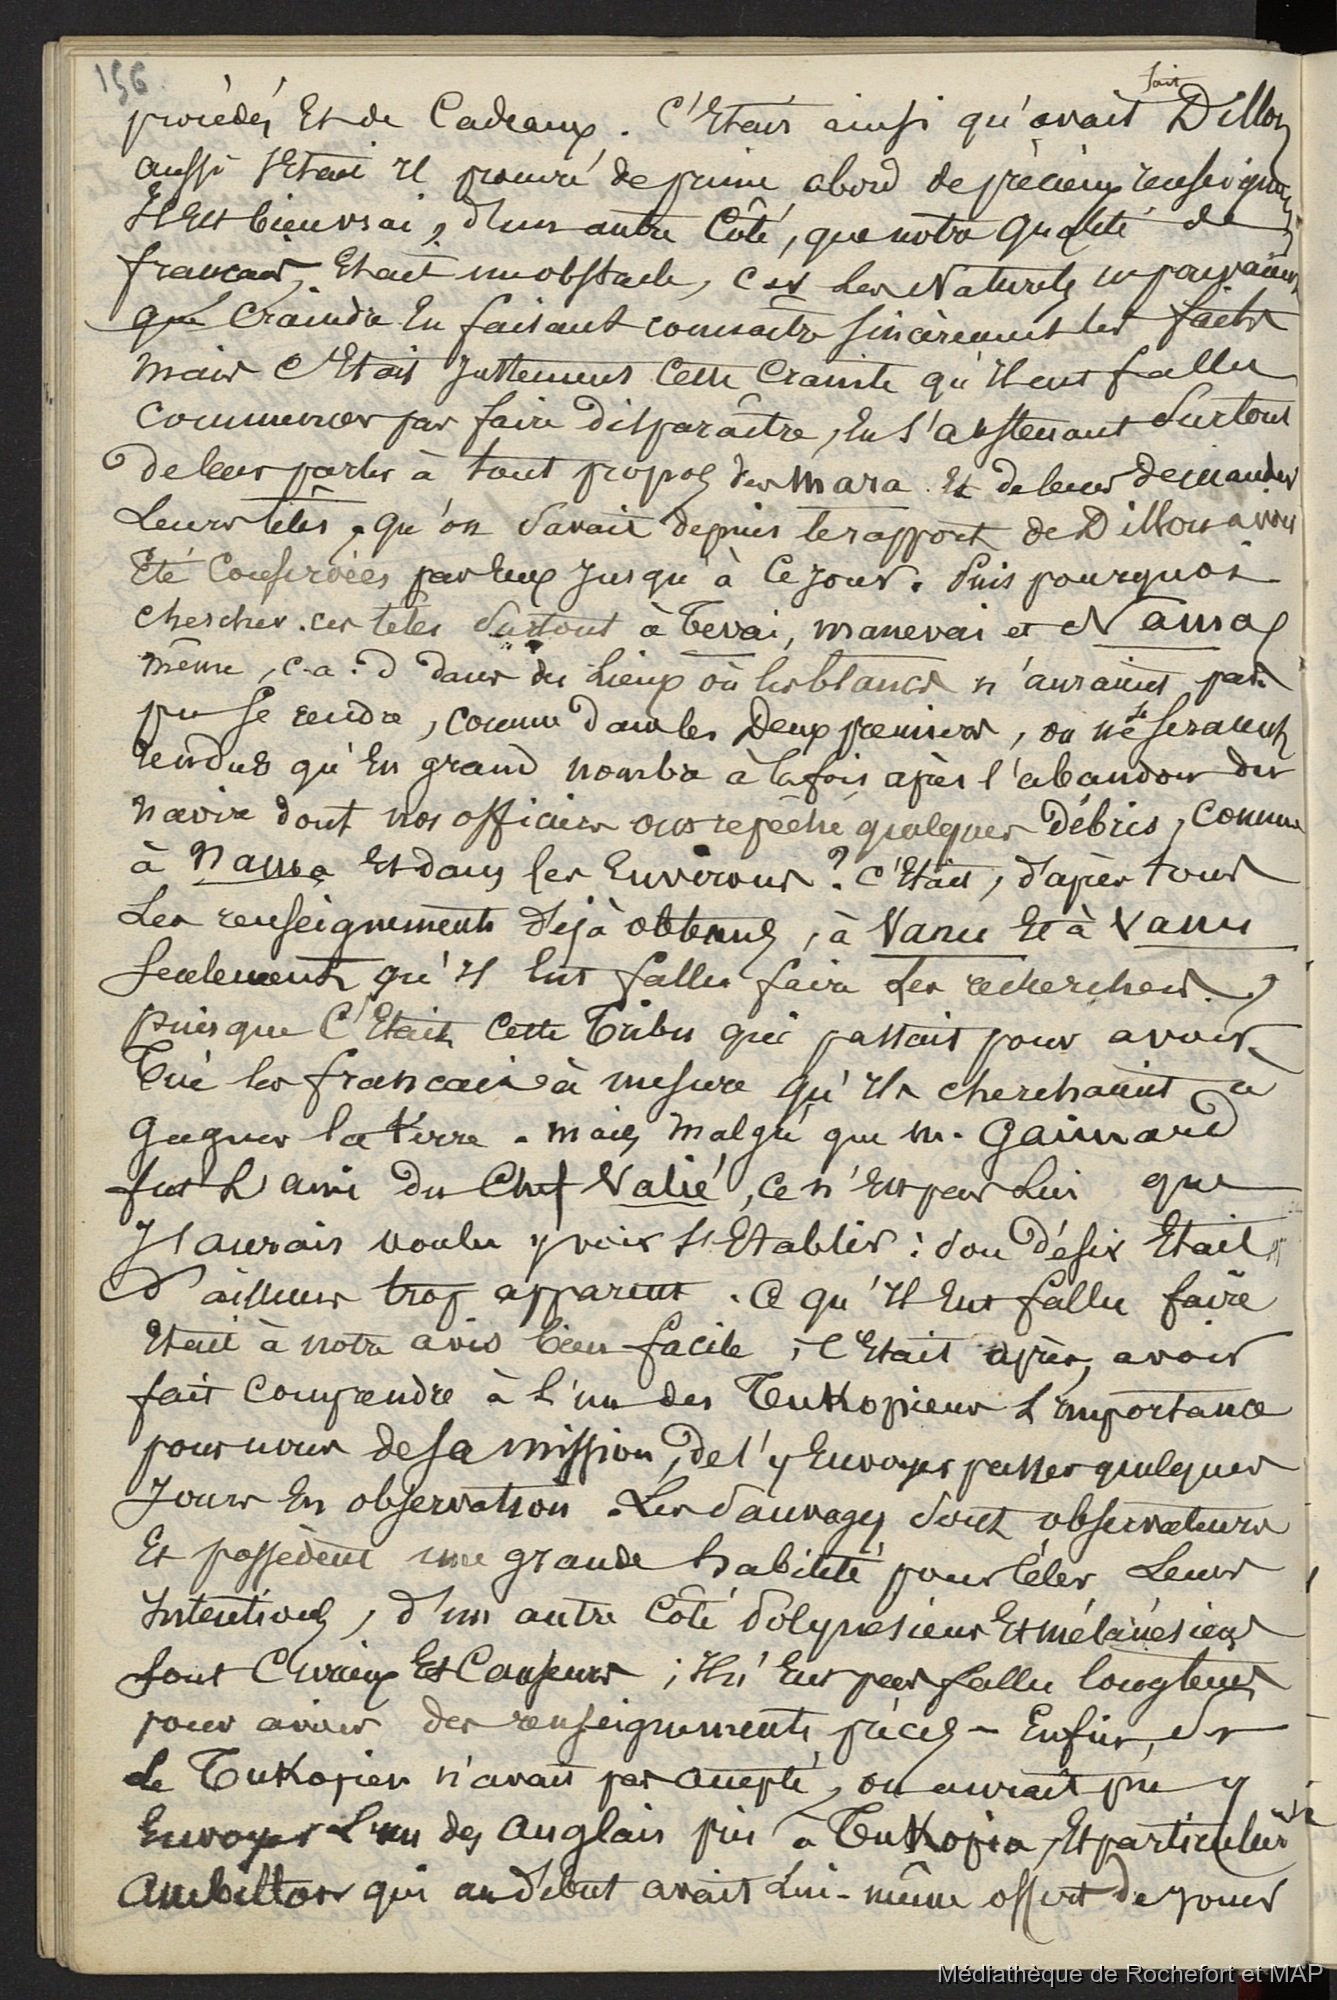 156
procédés Et de Cadeaux. C'Etait ainsi qu'avait fait Dillon
aussi s'Etait il procuré de prime abord de précieux renseignem
Il Est bien vrai, d'un autre Côté, que notre Qualité de
francais, Etait un obstacle, car les Naturels ne pouvaient
que Craindre En faisant connaitre sincèrement les faits
mais C'Etait justement Cette Crainte qu'il eut fallu
commencer par faire disparaître, En s'abstenant surtout
de leur parler à tout propos des mara Et de leur demander
Leurs têtes, qu'on savait depuis le rapport de Dillon avoir
Eté Conservées par Eux jusqu'à Ce jour. Puis pourquoi
chercher ces têtes surtout à Tevai, manevai et Nama
même, c-a-d dans des Lieux où les blancs n'auraient pas
pu se rendre, comme dans les Deux premiers, ou ne se seraient
rendus qu'En grand nombre à la fois après l'abandon du
navire dont nos officiers ont repêché quelques Débris, Comme
à Nama Et dans les Environs? C'Etait, d'après tous
Les renseignements Déjà obtenus, à Vanu Et à Vanu
seulement qu'il Eut fallu faire Les recherches,
puisque C'Etait Cette Tribu qui passait pour avoir
Tué les francais à mesure qu'ils cherchaient à
Gagner la terre. mais, Malgré que M. Gaimard
fut L'ami du Chef Valié, ce n'Est pas Lui que
J'aurais voulu y voir s'Etablir: son Désir Etait
D'ailleurs trop apparent. Ce qu'il Eut fallu faire
Etait à notre avis bien facile; C'Etait après, avoir
fait Comprendre à L'un des Tukopiens L'importance
pour nous de sa mission, de l'y Envoyer passer quelques
Jours En observation. Les Sauvages sont observateurs
Et possèdent une grande habilité pour céler Leurs
Intentions, d'un autre Côté Polynesiens Et mélanésiens
sont Curieux Et Causeurs; Il n'Eut pas fallu longtems
pour avoir des renseignements précis - Enfin, si
Le Tukopien n'avait pas accepté, on aurait pu y
Envoyer L'un des Anglais pris à Tukopia, Et particulier
Ambitton qui au début avait Lui-même offert de jouer
Médiathèque de Rochefort et MAP